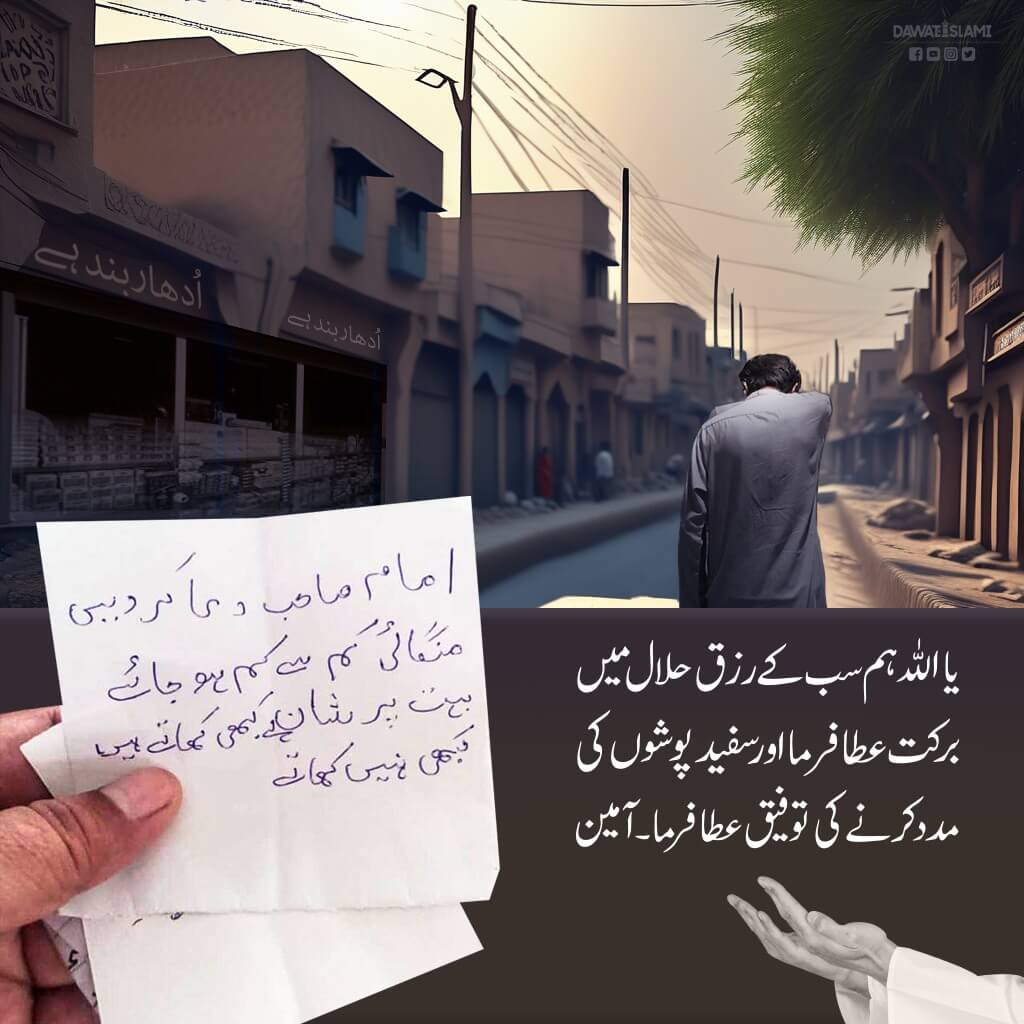 DAWATEISLAMI
اُدھار بند ہے
اُدھار بند ہے
امام صاحب دعا کر دیں
مہنگائی کم سے کم ہو جائے
بہت پریشان ہے کبھی کھاتے ہیں
کبھی نہیں کھاتے
یا اللہ ہم سب کے رزق حلال میں
برکت عطا فرما اور سفید پوشوں کی
مدد کرنے کی توفیق عطا فرما۔ آمین